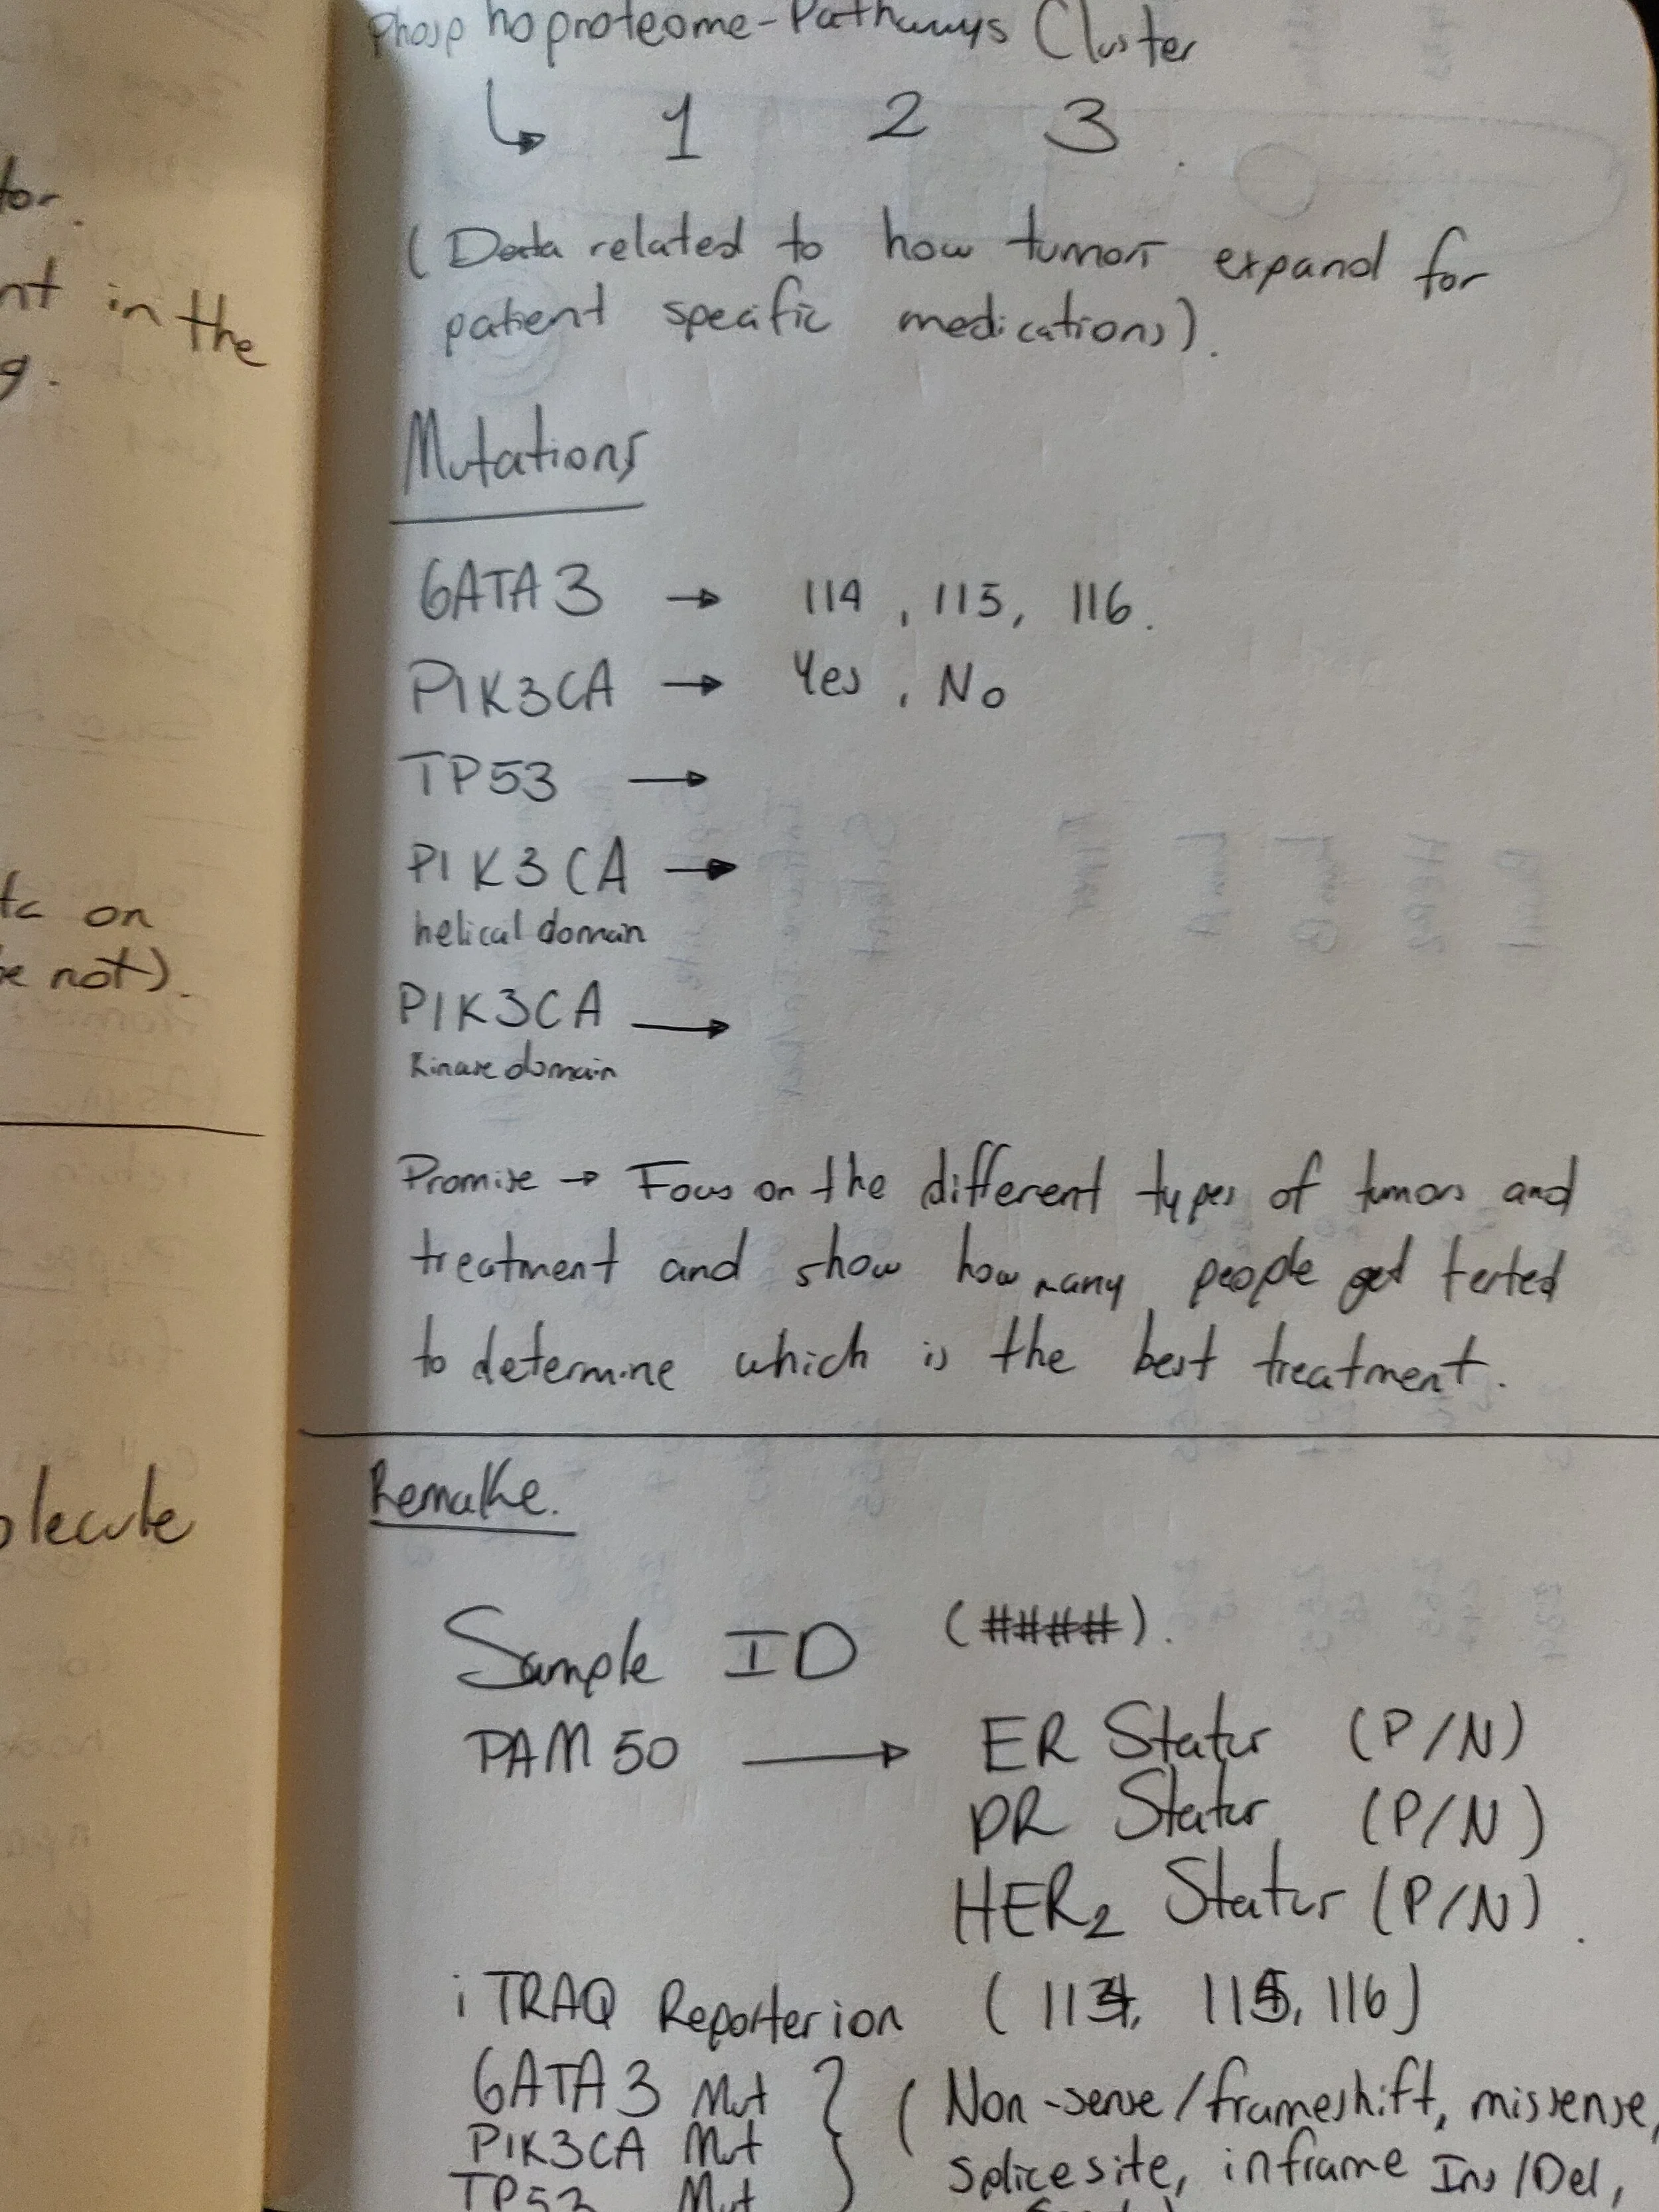 tor.
nt in the
g.
on
e not).
olecule
Phosphoproteome-Pathways Cluster
↳ 1 2 3
(Data related to how tumors expand for
patient specific medications).
Mutations
GATA3 → 114, 115, 116.
PIK3CA → Yes, No
TP53 →
PIK3CA →
helical domain
PIK3CA →
Kinase domain
Promise → Focus on the different types of tumors and
treatment and show how many people get tested
to determine which is the best treatment.
Remake.
Sample ID (####).
PAM50 → ER Status (P/N)
PR Status (P/N)
HER2 Status (P/N).
iTRAQ Reporter ion (114, 115, 116)
GATA3 Mut } (Non-sense/frameshift, missense,
PIK3CA Mut
TP53 Mut splice site, inframe Ins/Del,